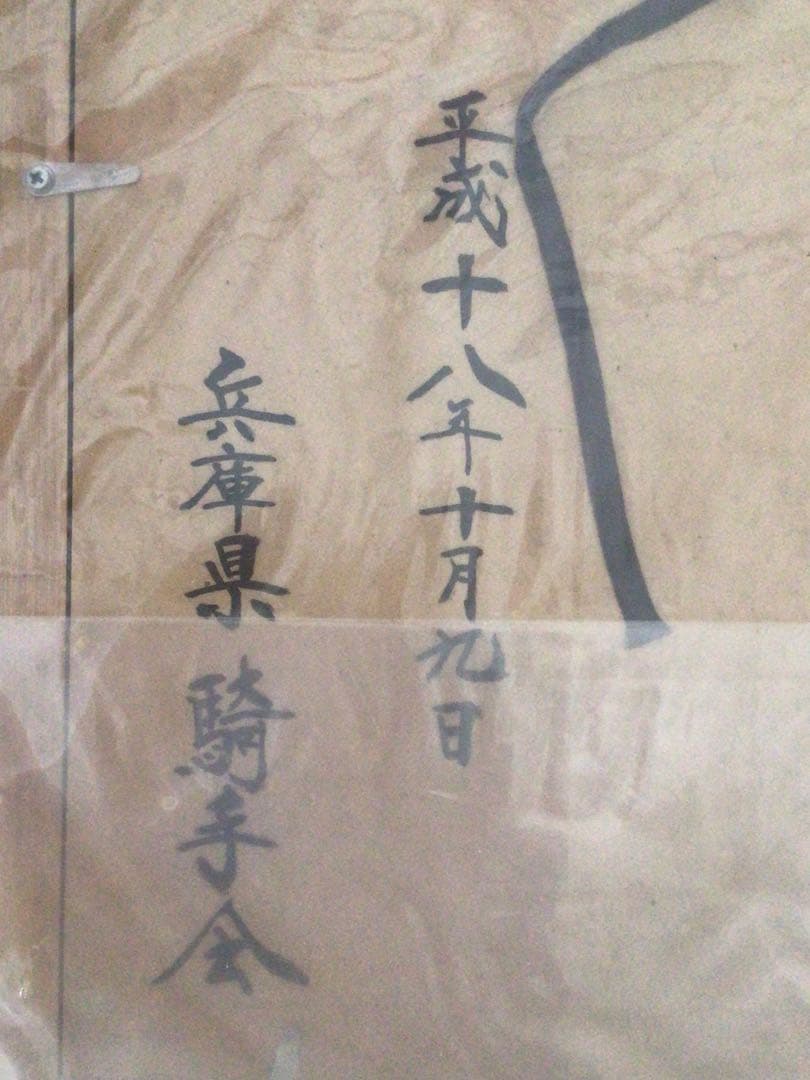 平成十八年十月九日
兵庫県騎手会